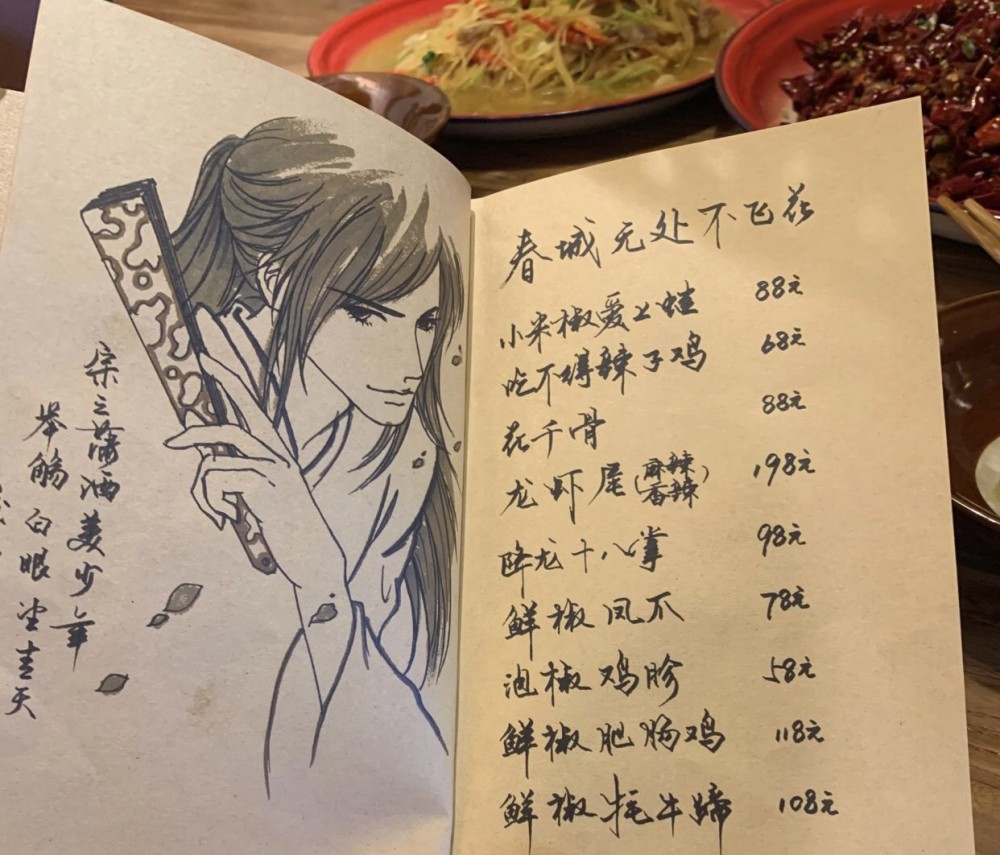 宗之潇洒美少年
举觞白眼望青天
春城无处不飞花
小米椒爱上蛙 88元
吃不得辣子鸡 68元
花千骨 88元
龙虾尾(麻辣 香辣) 198元
降龙十八掌 98元
鲜椒凤爪 78元
泡椒鸡胗 58元
鲜椒肥肠鸡 118元
鲜椒牦牛蹄 108元